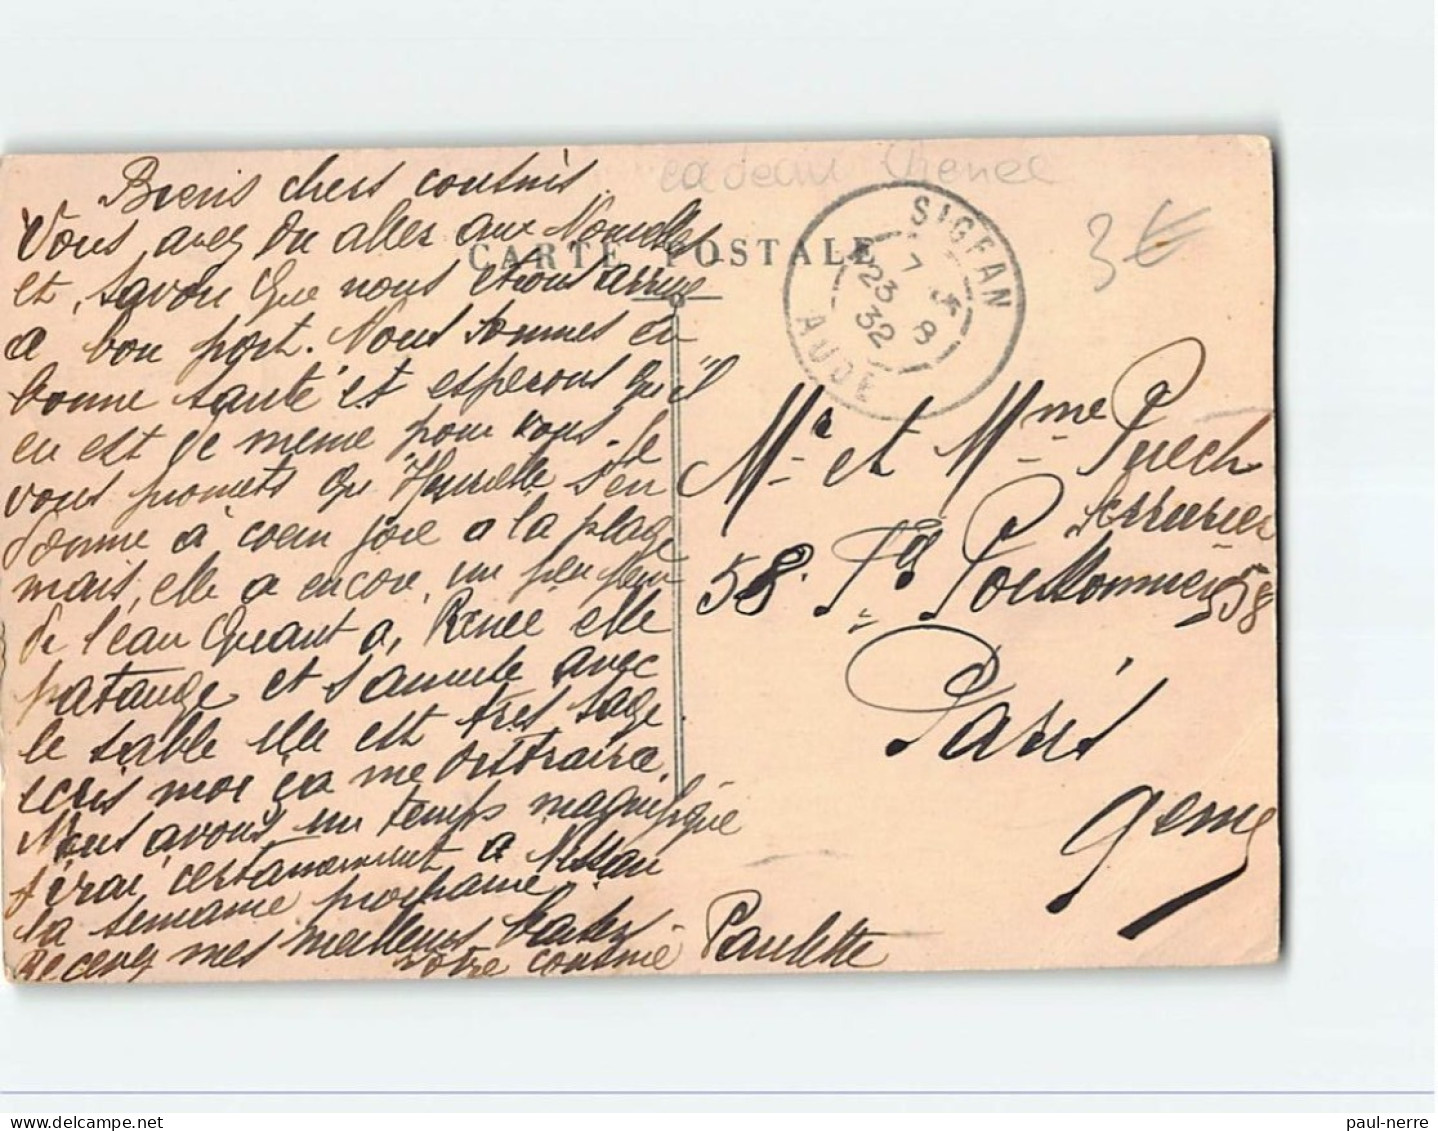 cadeau Renée
3€
CARTE POSTALE
SIGEAN
7 5
23 8
32
AUDE
Biens chers cousins
Vous avez du aller aux Nouvelles
et savoir que nous etions arrivé
a bon port. Nous sommes en
bonne santé et esperons qu'il
en est de meme pour vous. Je
vous promets qu' s'en
donne à coeur joie a la plage
mais, elle a encore un peu peur
de l'eau Quant a, Renée elle
patauge et s'amuse avec
le sable elle est très sage
ecris moi ça me distraira.
Nous avons un temps magnifique
J'irai certainement a Nissan
la semaine prochaine
Recevez mes meilleurs baisers
votre cousine Paulette
Mr et Mme Puech
serrurier
58. Fg Poissonnière 58
Paris
9eme
paul-nerre